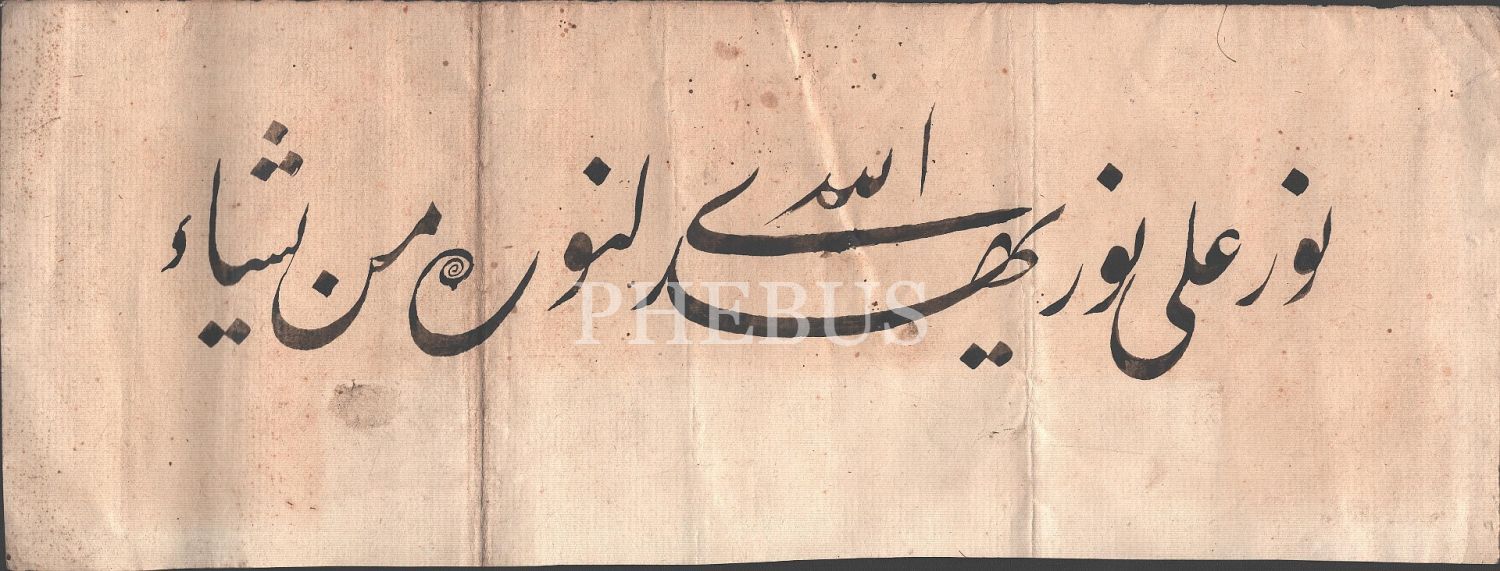 نور علی نور یهدی الله لنوره من یشاء
PHEBUS